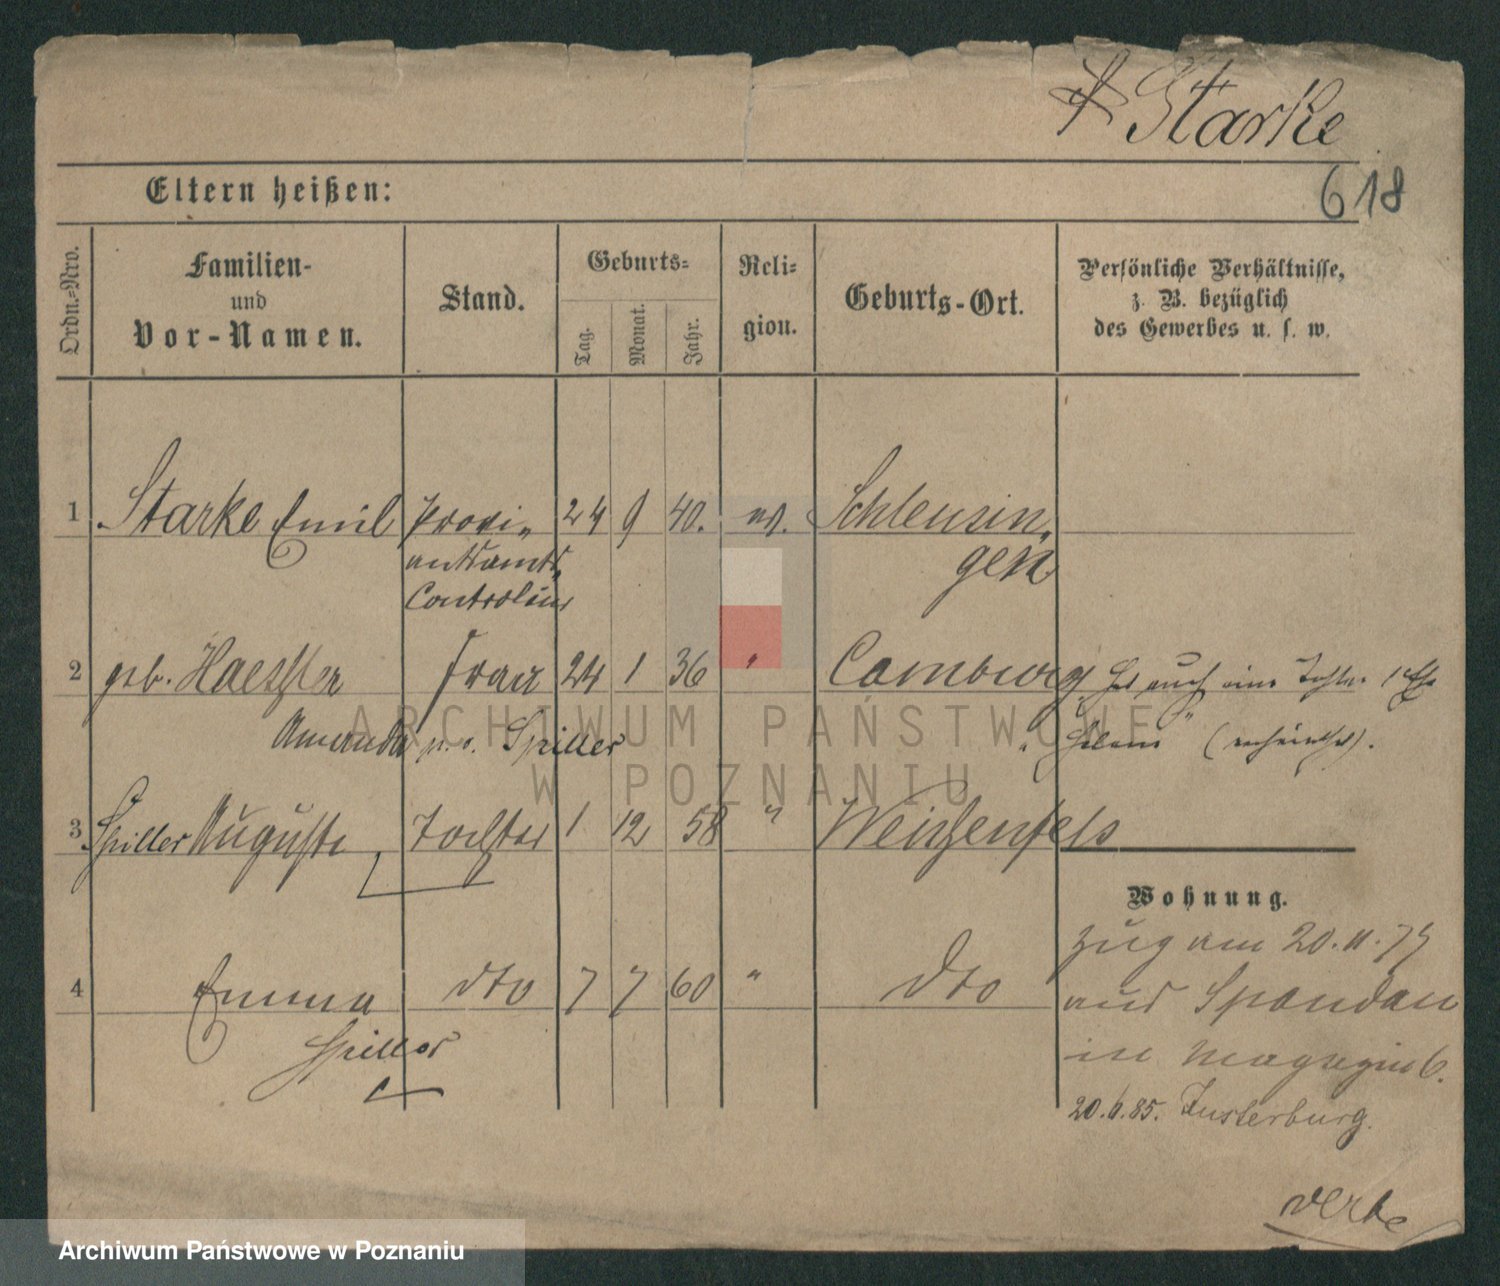 Starke
618
Eltern heißen:
Ordn.-Nro.
Familien-
und
Vor-Namen.
Stand.
Geburts-
Tag.
Monat.
Jahr.
Reli-
gion.
Geburts-Ort.
Persönliche Verhältnisse,
z. B. bezüglich
des Gewerbes u. s. w.
1 Starke Emil Provi- 24 9 40. ev. Schleusin-
antsamts- gen
Controleur
2 geb. Haessler Frau 24 1 36 " Camburg hat auch eine Tochter 1r Ehe
Amanda v. Spiller " Helene
3 Spiller Auguste Tochter 1 12 58 " Weißenfels
Wohnung.
4 Emma dto 7 7 60 " dto
Spiller
Zug am 20.11.75
aus Spandau
in Magazin 6.
20.6.85. Insterburg.
ARCHIWUM PAŃSTWOWE
W POZNANIU
Archiwum Państwowe w Poznaniu